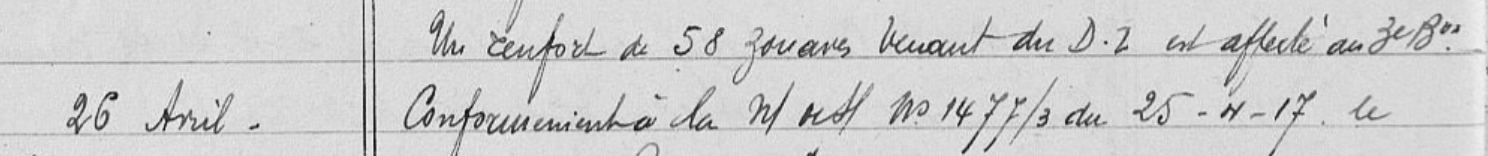 Un renfort de 58 zouaves venant du D.I est affecté au 3e Bon.
26 Avril - Conformément à la N/ No 1477/3 du 25-4-17. le